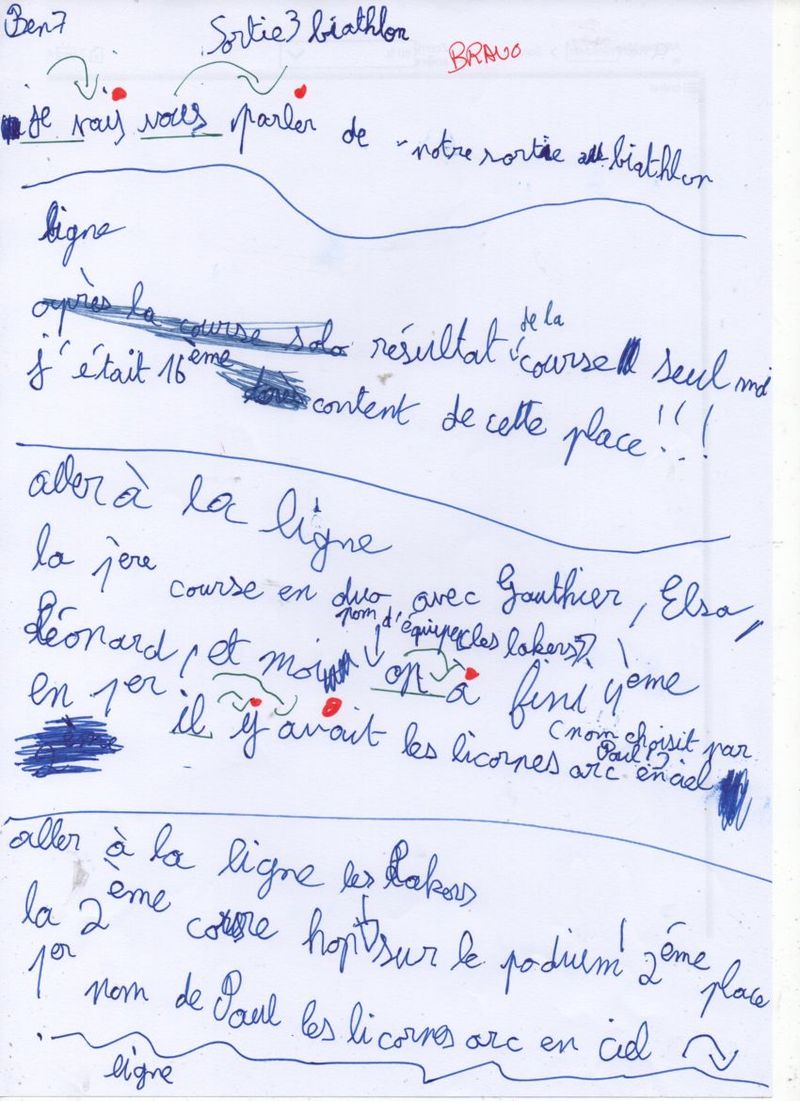 Ben7
Sortie3 biathlon
BRAVO
je vais vous parler de notre sortie au biathlon
ligne
après la course solo résultat de la course seul moi
j'était 16ème content de cette place !!!
aller à la ligne
la 1ère course en duo avec Gauthier, Elsa,
Léonard, et moi nom d'équipe (les lakers) on a fini 4ème
en 1er il y avait les licornes arc en ciel (nom choisit par Paul)
aller à la ligne
la 2ème course hop les Lakers sur le podium! 2ème place
1er nom de Paul les licornes arc en ciel
ligne